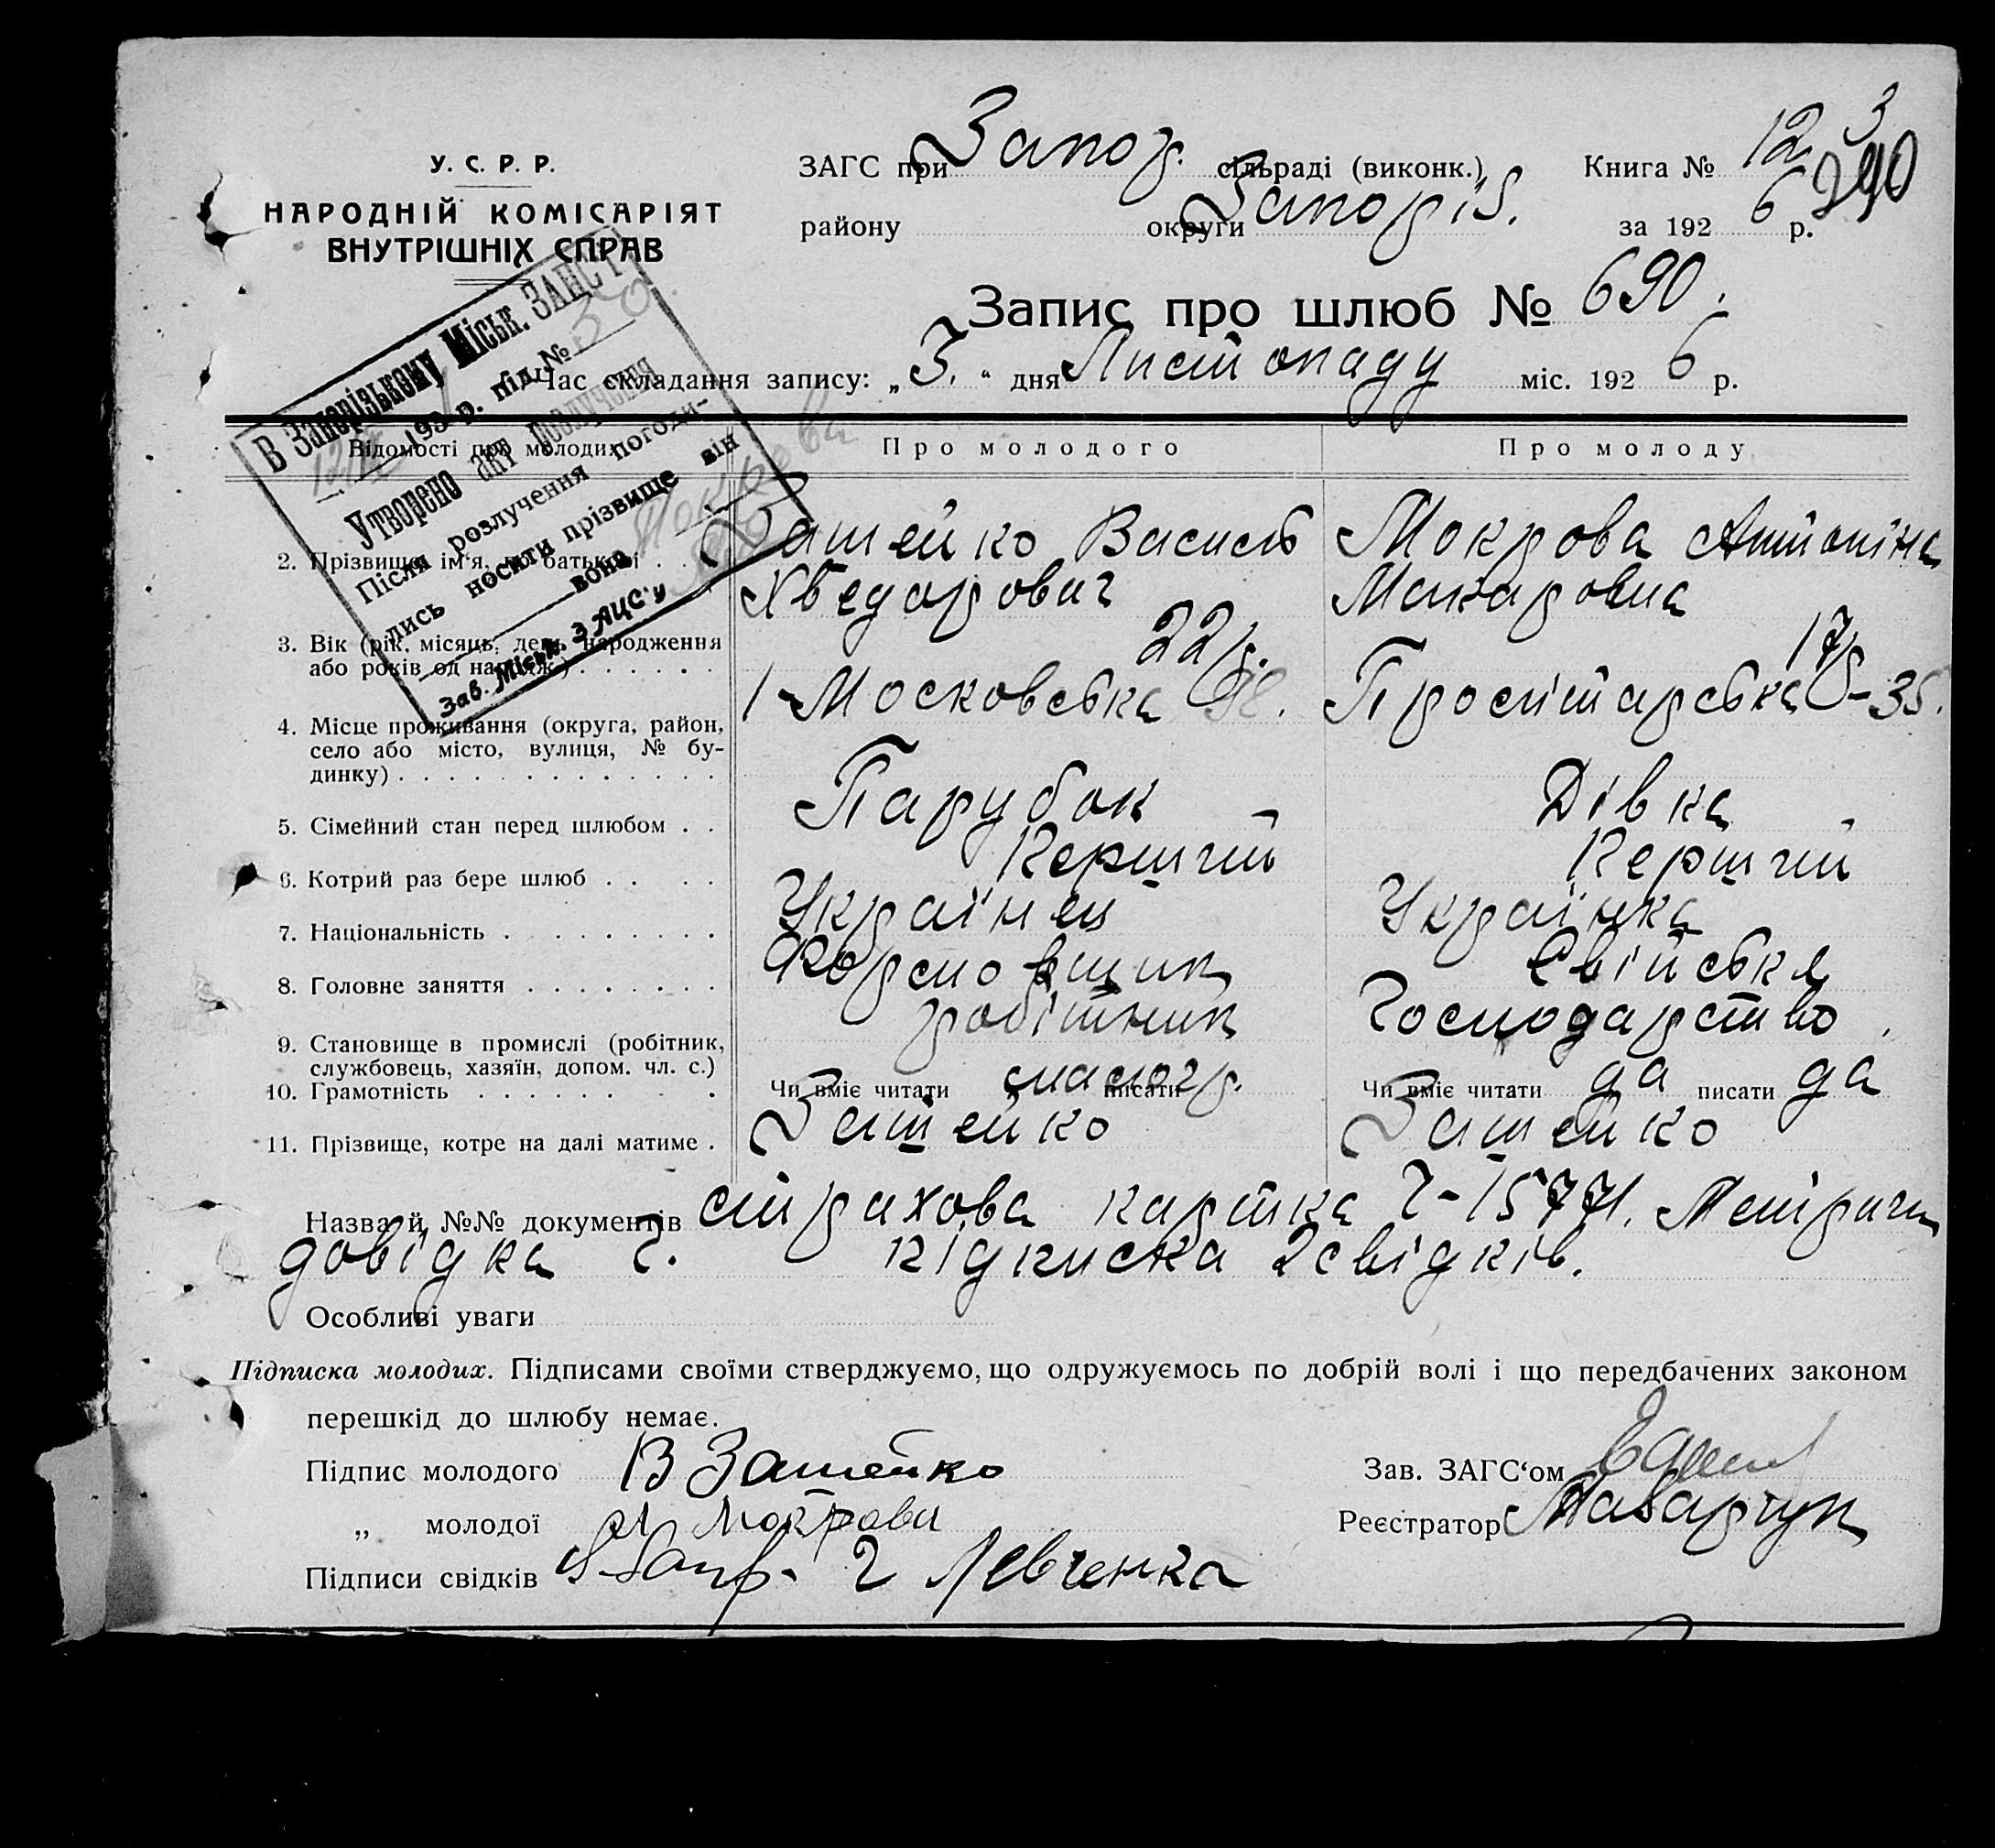 У. С. Р. Р.
НАРОДНІЙ КОМІСАРІЯТ
ВНУТРІШНІХ СПРАВ
ЗАГС при Запор. сільраді (виконк.) Книга № 12 3
290
району округи Запоріз. за 192 6 р.
Запис про шлюб № 690.
Час складання запису: „3.“ дня Листопаду міс. 192 6 р.
В Запорізькому Міськ. ЗАПСТ
12/ 193 р. під № 30
Утворено акт розлучення
Після розлучення погоди-
лись носити прізвище він
вона Мокрова
Зав. Міськ. ЗАЦС'у
Відомості про молодих Про молодого Про молоду
2. Прізвище, ім'я, по батькові . . Затейко Василь Мокрова Антоніна
Хведорович Макаровна
3. Вік (рік, місяць, день народження
або років од народж.) . . . . . . 22 р. 17 р
4. Місце проживання (округа, район,
село або місто, вулиця, № бу-
динку) . . . . . . . . . . . . . . І-Московська Пролітарська-35.
5. Сімейний стан перед шлюбом . . Парубок Дівка
6. Котрий раз бере шлюб . . . . Перший Перший
7. Національність . . . . . . . . . Українец Українка
8. Головне заняття . . . . . . . . Формовщик Свійське
9. Становище в промислі (робітник,
службовець, хазяїн, допом. чл. с.) робітник Господарство.
10. Грамотність . . . . . . . . Чи вміє читати малогр. писати Чи вміє читати да писати да
11. Прізвище, котре на далі матиме . Затейко Затейко
Назва й №№ документів страхова картка Ч-15771. Метрична
довідка Ч. підписка 2 свідків.
Особливі уваги
Підписка молодих. Підписами своїми стверджуємо, що одружуємось по добрій волі і що передбачених законом
перешкід до шлюбу немає.
Підпис молодого В Затейко Зав. ЗАГС‘ом
„ молодої А Мокрова Реєстратор
Підписи свідків Левченка